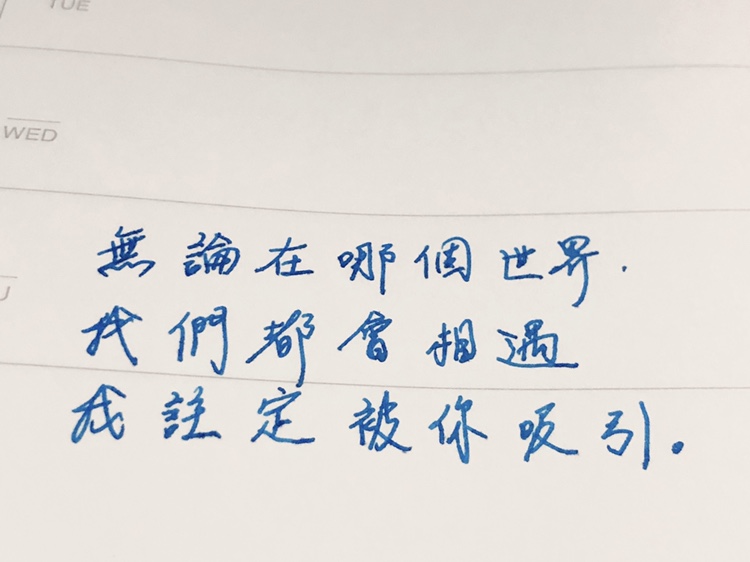 TUE
WED
無論在哪個世界.
我們都會相遇
我註定被你吸引。